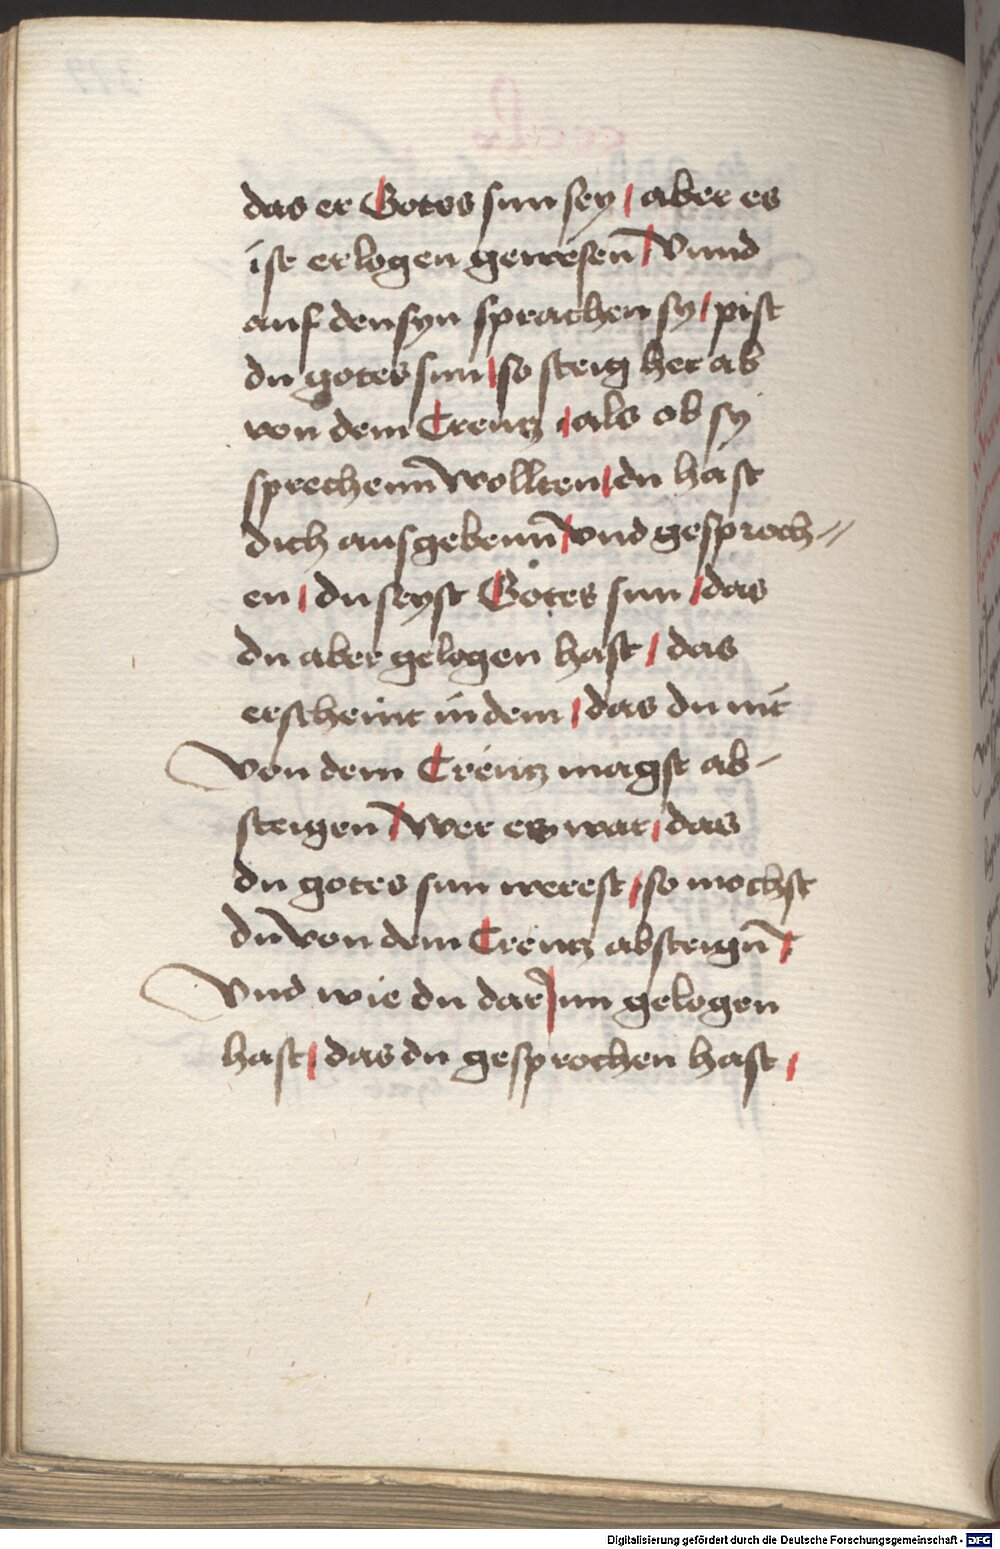 das er Gotes sun sey / aber es
ist erlogen gewesen̄ / Vnnd
auf den syn sprachen sy / pist
du gotes sun / so steig her ab
von dem Creutz / als ob sy
sprechenn̄ wollten / du hast
dich ausgebenn̄ / vnd gesproch=
en / du seyst Gotes sun / das
du aber gelogen hast / das
erscheint in dem / das du nit
Von dem Creutz magst ab-
steigen̄ / Wer es war / das
du gotes sun werest / so mochst
dū von dem Creutz absteign̄ /
Vnd wie du dar Inn gelogen
hast / das du gesprochen hast /
Digitalisierung gefördert durch die Deutsche Forschungsgemeinschaft - DFG